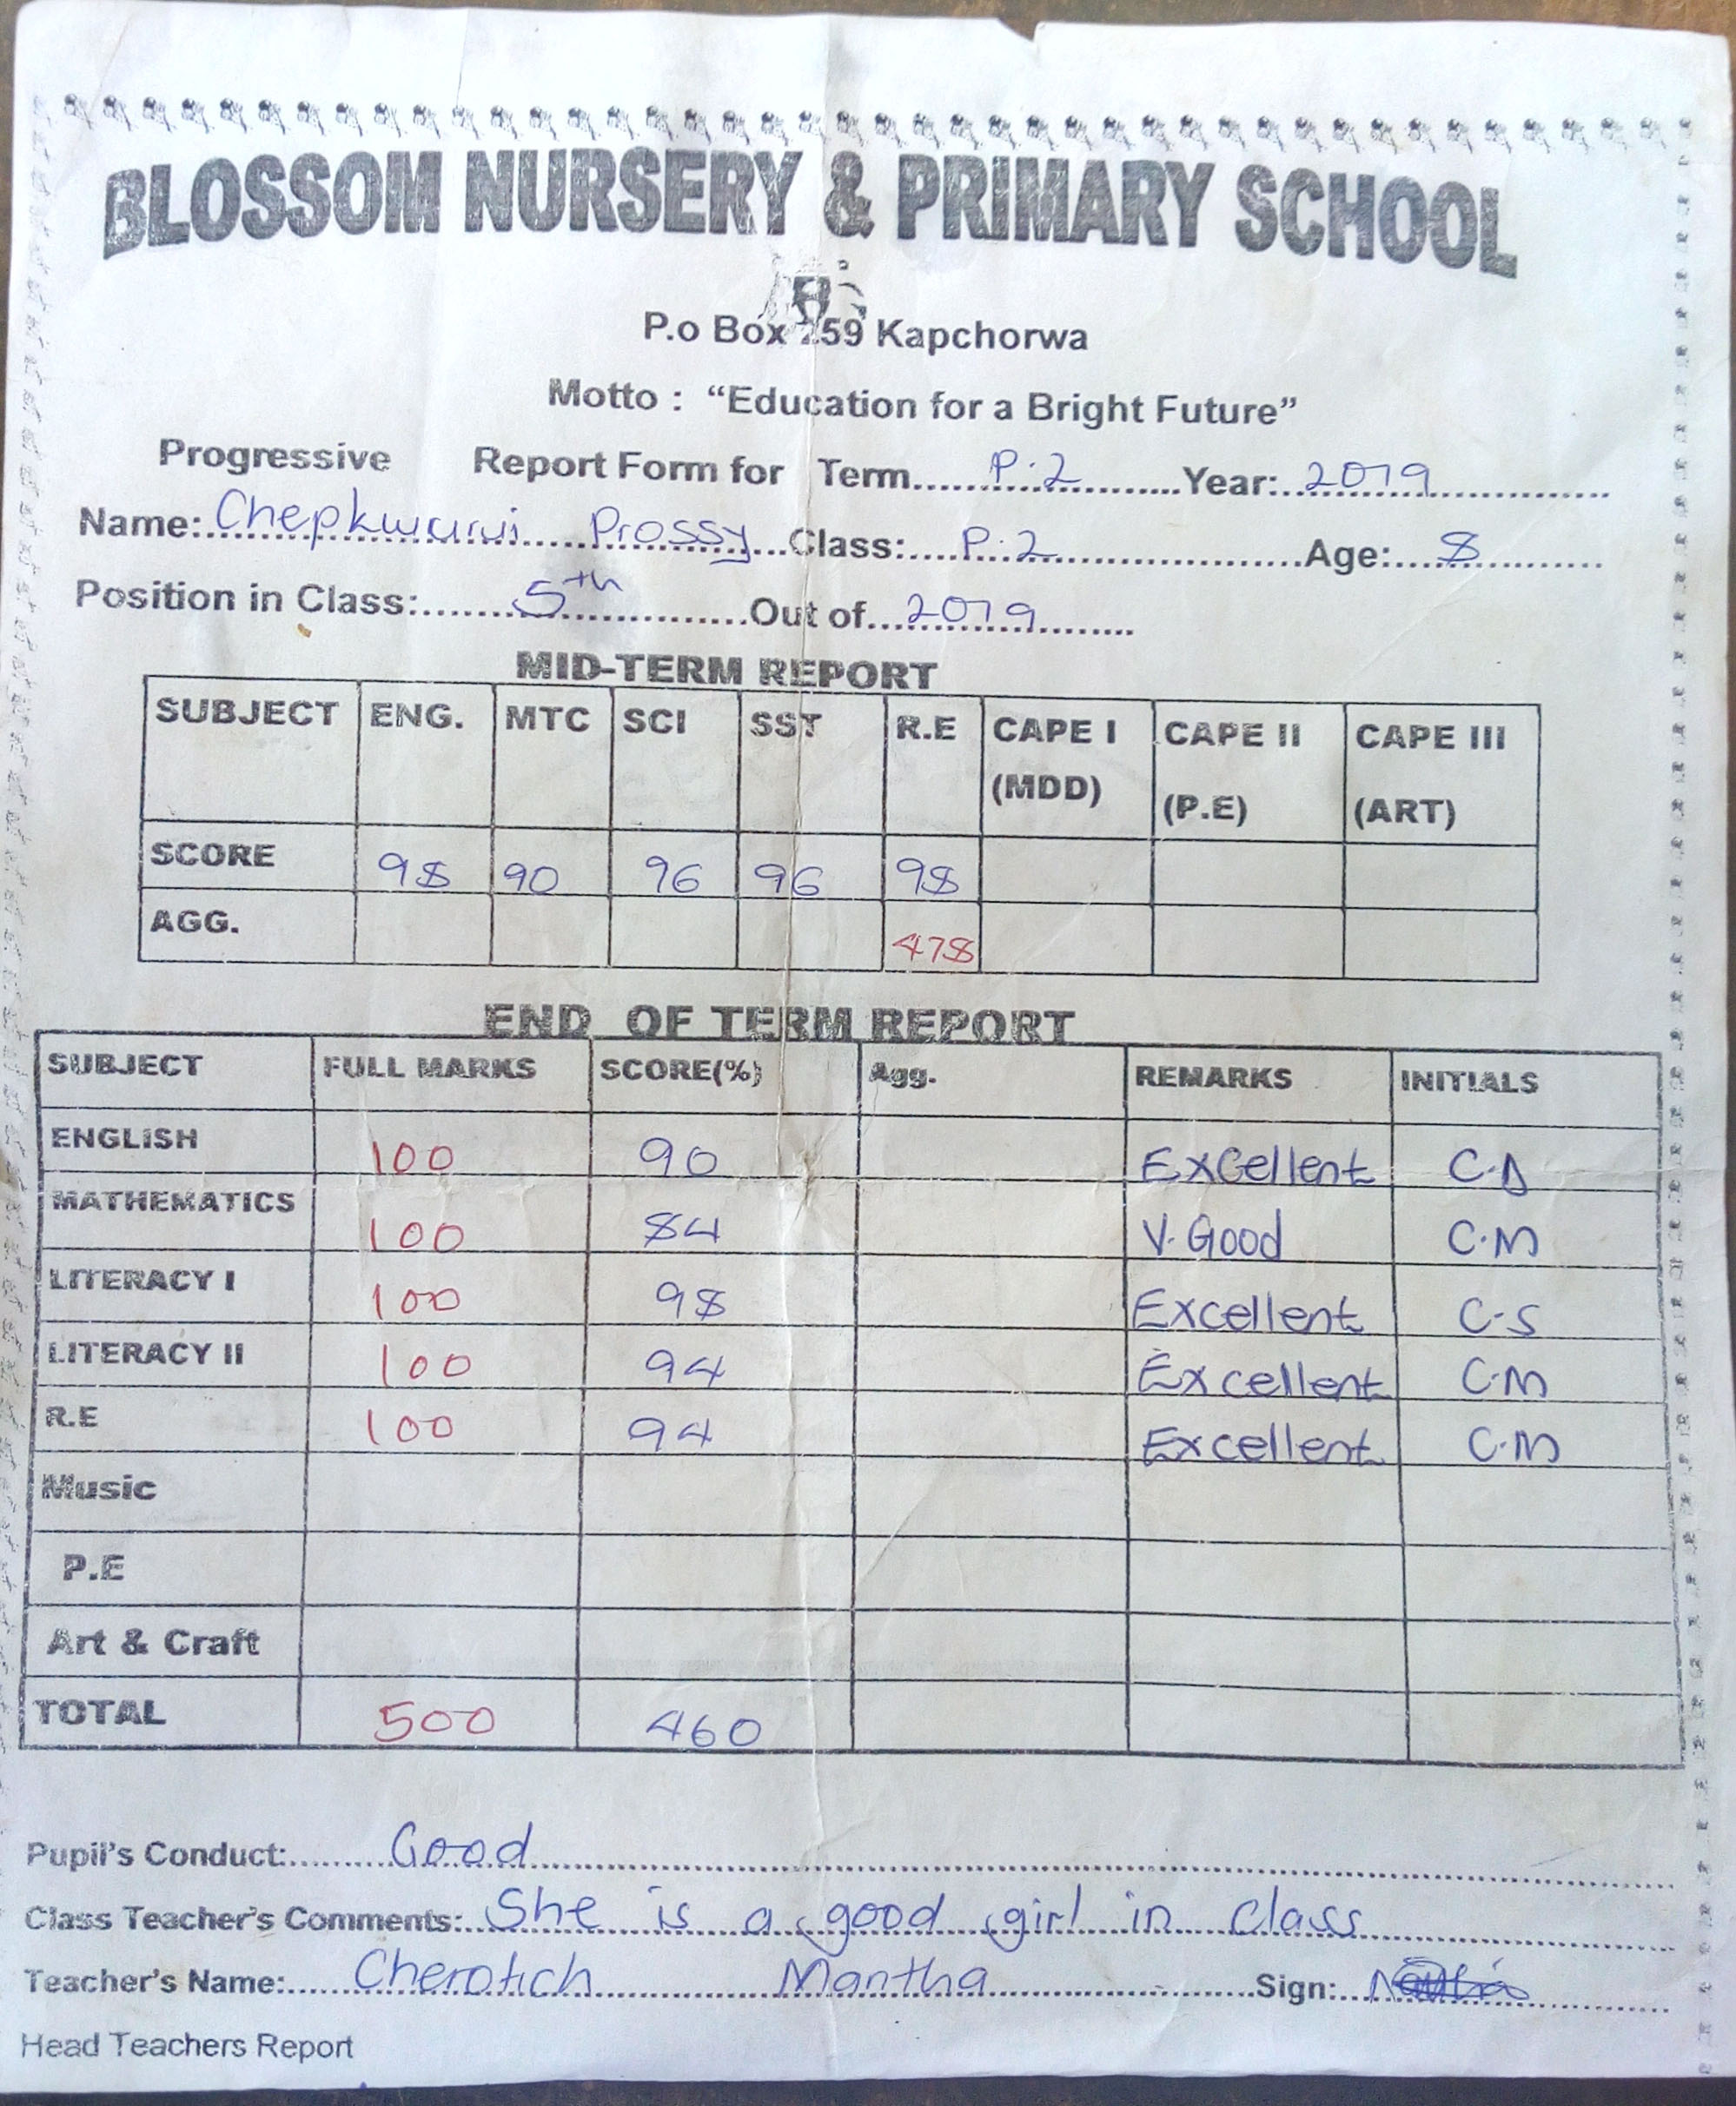 BLOSSOM NURSERY & PRIMARY SCHOOL
P.o Box 259 Kapchorwa
Motto : “Education for a Bright Future”
Progressive Report Form for Term P.2 Year: 2019
Name: Prossy Class: P.2 Age: 8
Position in Class: 5th Out of 2019
MID-TERM REPORT
SUBJECT ENG. MTC SCI SST R.E CAPE I (MDD) CAPE II (P.E) CAPE III (ART)
SCORE 98 90 96 96 98
AGG. 478
END OF TERM REPORT
SUBJECT FULL MARKS SCORE(%) Agg. REMARKS INITIALS
ENGLISH 100 90 Excellent C.D
MATHEMATICS 100 84 V. Good C.M
LITERACY I 100 98 Excellent C-S
LITERACY II 100 94 Excellent C.M
R.E 100 94 Excellent C.M
Music
P.E
Art & Craft
TOTAL 500 460
Pupil's Conduct: Good
Class Teacher's Comments: She is a good girl in class
Teacher's Name: Cherotich Mantha Sign:
Head Teachers Report